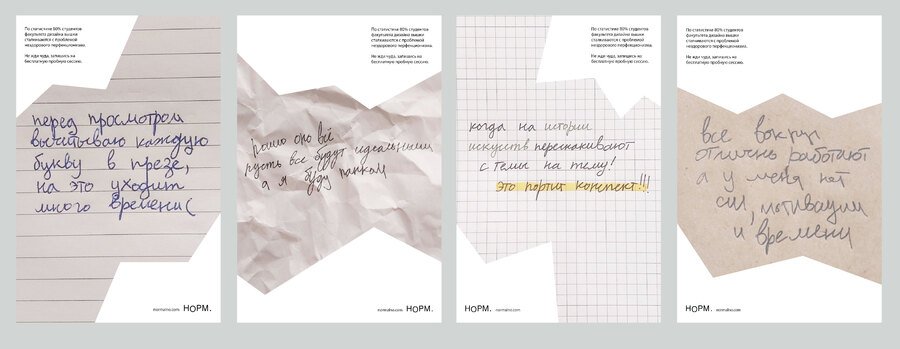 По статистике 80% студентов
факультета дизайна вышки
сталкиваются с проблемой
нездорового перфекционизма.
Не жди чуда, запишись на
бесплатную пробную сессию.
перед просмотром
вычитываю каждую
букву в презе,
на это уходит
много времени(
normalno.com НОРМ.
По статистике 80% студентов
факультета дизайна вышки
сталкиваются с проблемой
нездорового перфекционизма.
Не жди чуда, запишись на
бесплатную пробную сессию.
оно всё
пусть все будут идеальными
а я буду панком
normalno.com НОРМ.
По статистике 80% студентов
факультета дизайна вышки
сталкиваются с проблемой
нездорового перфекционизма.
Не жди чуда, запишись на
бесплатную пробную сессию.
когда на истории
искусств перескакивают
с темы на тему!
это портит конспект!!!
normalno.com НОРМ.
По статистике 80% студентов
факультета дизайна вышки
сталкиваются с проблемой
нездорового перфекционизма.
Не жди чуда, запишись на
бесплатную пробную сессию.
все вокруг
отлично работают
а у меня нет
сил, мотивации
и времени
normalno.com НОРМ.